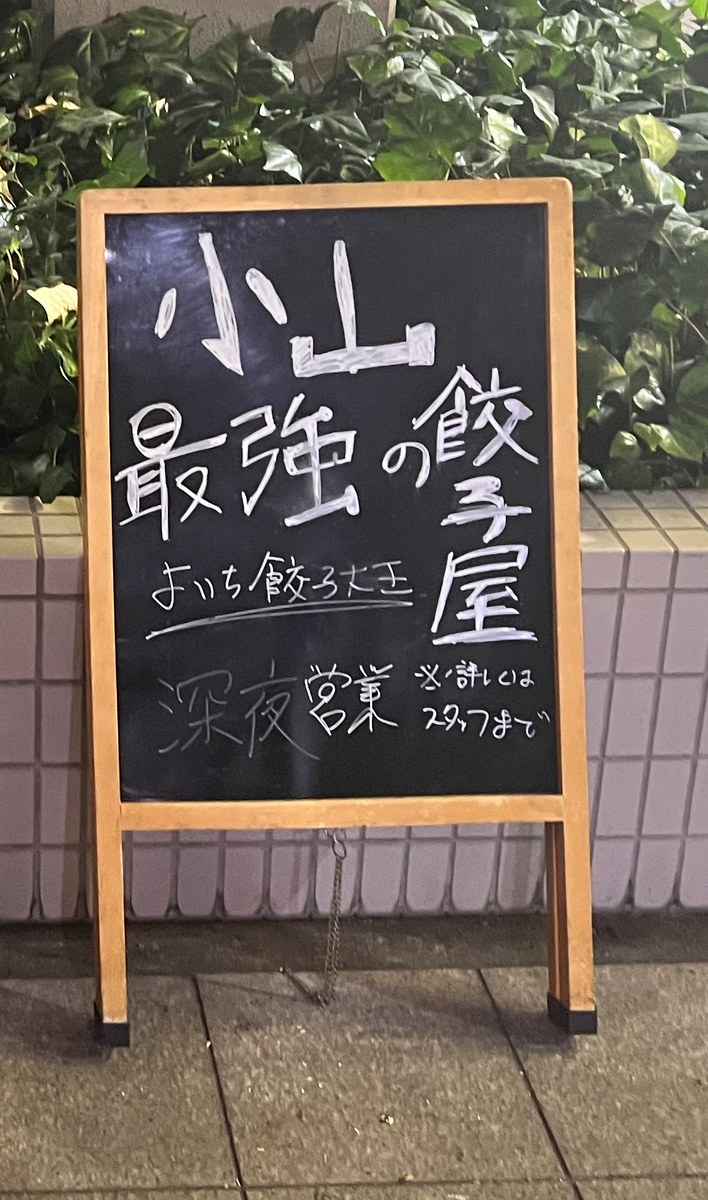 小山
最強の
餃子屋
よいち餃子大王
深夜営業
※詳しくは
スタッフまで